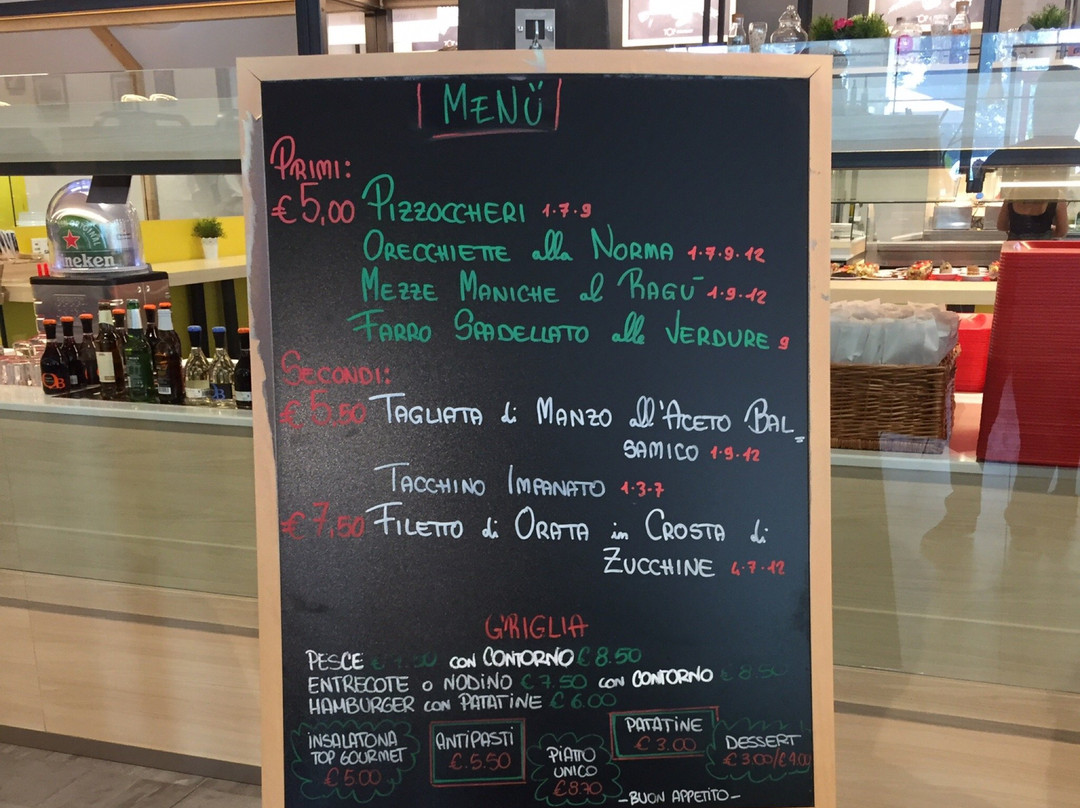 MENÙ
PRIMI:
€5,00 PIZZOCCHERI 1-7-9
ORECCHIETTE alla NORMA 1-7-9-12
MEZZE MANICHE al RAGÙ 1-9-12
FARRO SPADELLATO alle VERDURE 9
SECONDI:
€5,50 TAGLIATA di MANZO all'ACETO BAL_
SAMICO 1-9-12
TACCHINO IMPANATO 1-3-7
€7,50 FILETTO di ORATA in CROSTA di
ZUCCHINE 4-7-12
GRIGLIA
PESCE € 7.50 con CONTORNO € 8.50
ENTRECOTE o NODINO € 7.50 con CONTORNO € 8.50
HAMBURGER con PATATINE € 6.00
INSALATONA
TOP GOURMET
€ 5.00
ANTIPASTI
€.5.50
PIATTO
UNICO
€8.70
PATATINE
€ 3.00
DESSERT
€ 3.00/€4.00
_BUON APPETITO_
neken